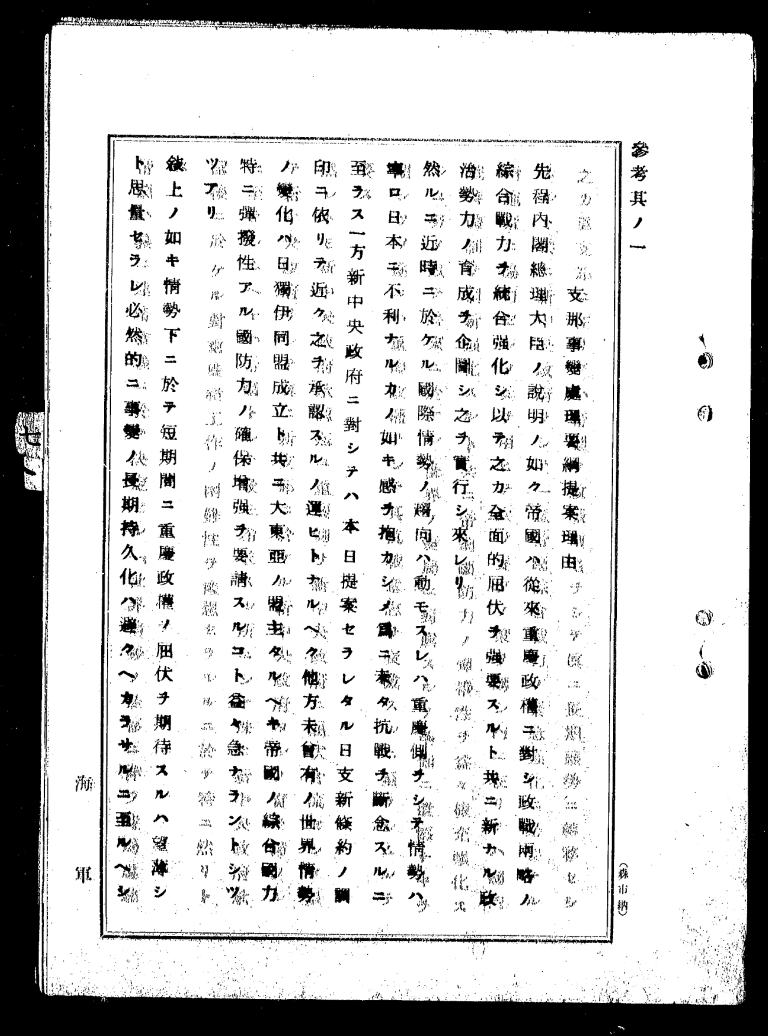 參考其ノ一
支那事變處理要綱提案理由
先程內閣總理大臣ノ說明ノ如ク帝國ハ從來重慶政權ニ對シ政戰兩略ノ
綜合戰力ヲ統合强化シ以テ之カ全面的屈伏ヲ强要スルト共ニ新ナル政
治勢力ノ育成ヲ企圖シ之ヲ實行シ來レリ
然ルニ近時ニ於ケル國際情勢ノ趨向ハ動モスレハ重慶側ヲシテ情勢ハ
寧ロ日本ニ不利ナルカノ如キ感ヲ抱カシメ爲ニ未タ抗戰ヲ斷念スルニ
至ラス一方新中央政府ニ對シテハ本日提案セラレタル日支新條約ノ調
印ニ依リテ近ク之ヲ承認スルノ運ヒトナルヘク他方未曾有ノ世界情勢
ノ變化ハ日獨伊同盟成立ト共ニ大東亞ノ盟主タルヘキ帝國ノ綜合國力
特ニ彈撥性アル國防力ノ確保增强ヲ要請スルコト益々急ナラントシツ
ツアリ
敍上ノ如キ情勢下ニ於テ短期間ニ重慶政權ノ屈伏ヲ期待スルハ望薄シ
ト思量セラレ必然的ニ事變ノ長期持久化ハ避クヘカラサルニ至ルヘシ
海軍
(森市納)
七